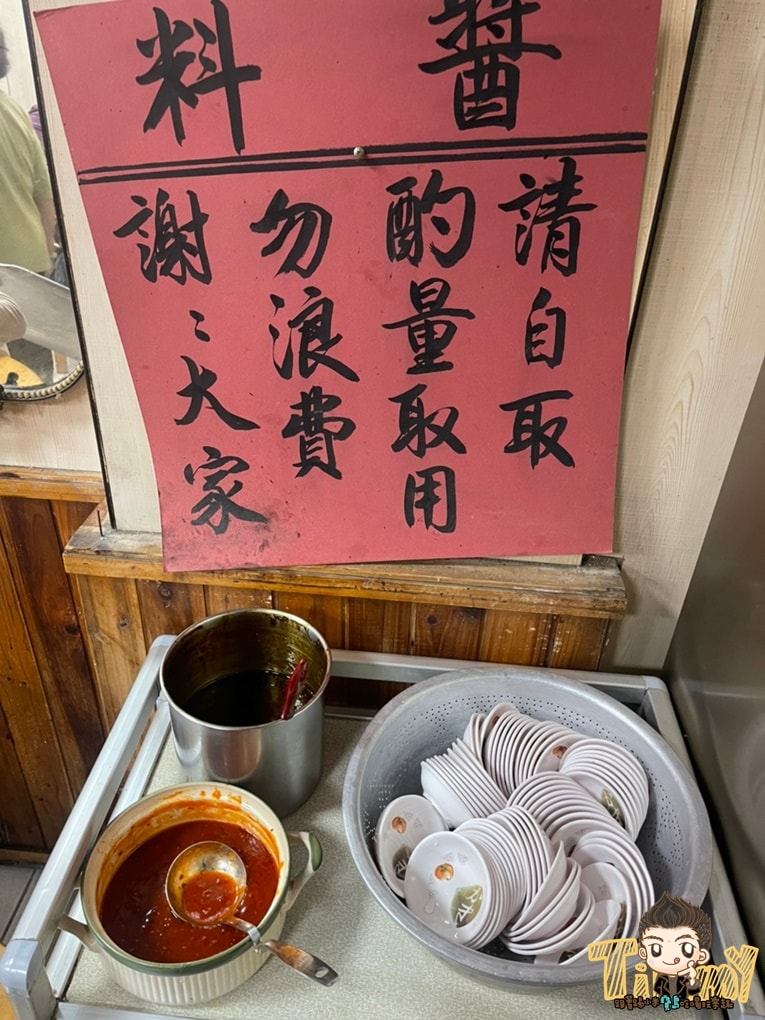 醬料
請自取
酌量取用
勿浪費
謝〻大家
TiMMY